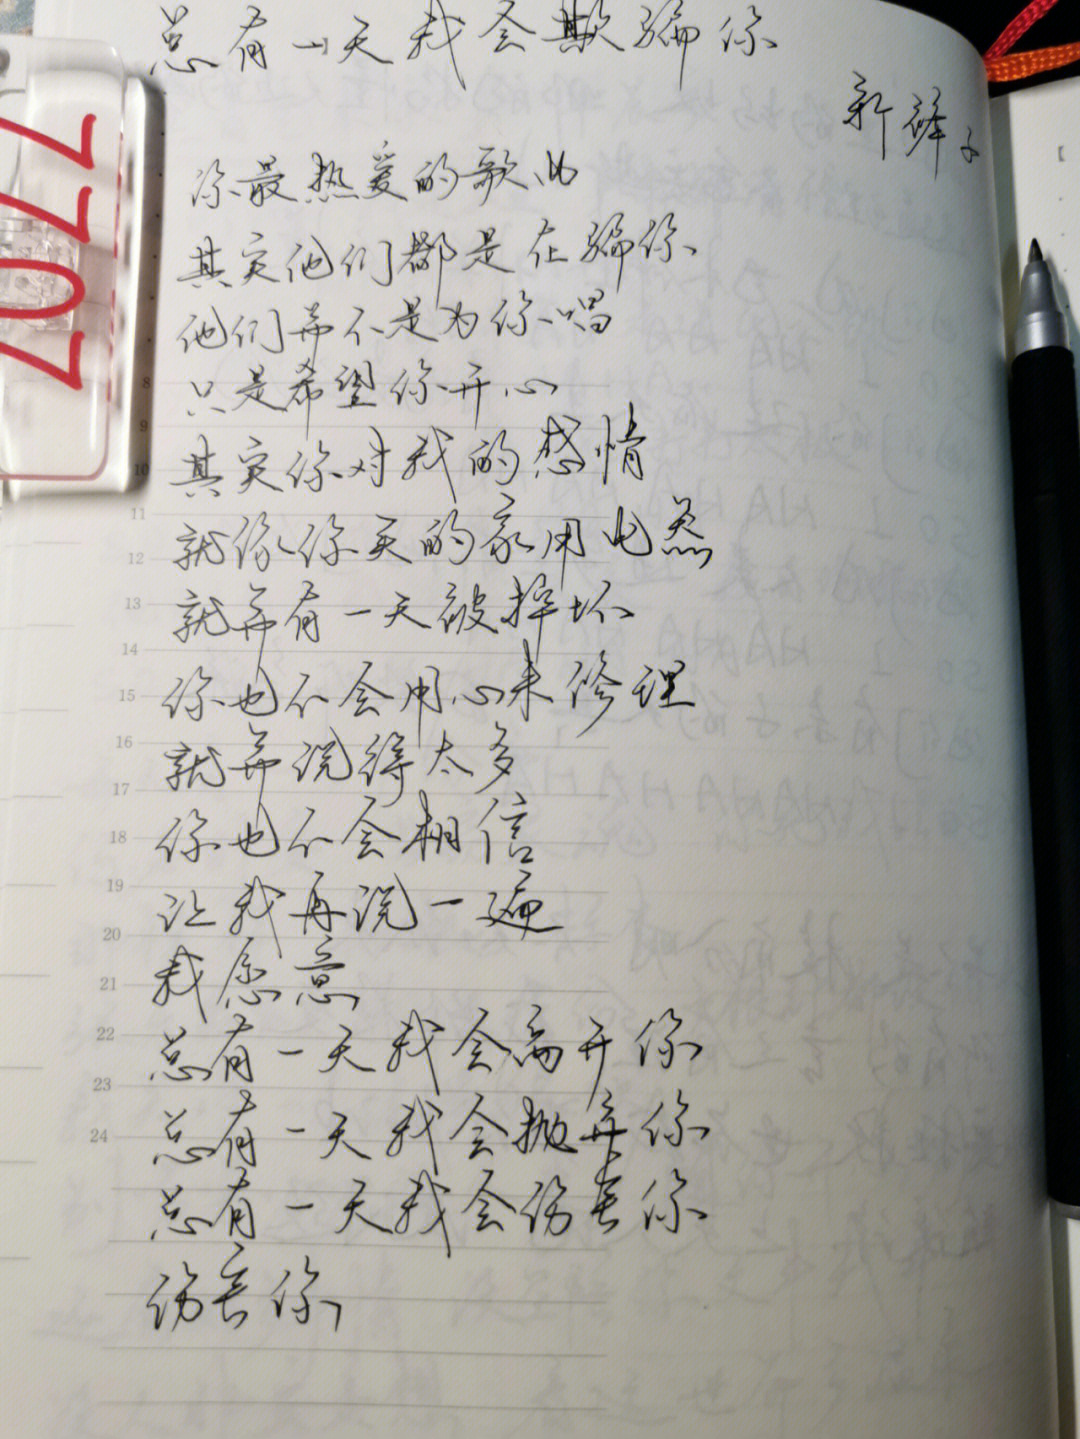 总有一天我会欺骗你
新裤子
你最热爱的歌曲
其实他们都是在骗你
他们并不是为你唱
只是希望你开心
其实你对我的感情
就像你天的家用电器
就算有一天被摔坏
你也不会用心来修理
就算说得太多
你也不会相信
让我再说一遍
我愿意
总有一天我会离开你
总有一天我会抛弃你
总有一天我会伤害你
伤害你
7707
8
9
10
11
12
13
14
15
16
17
18
19
20
21
22
23
24